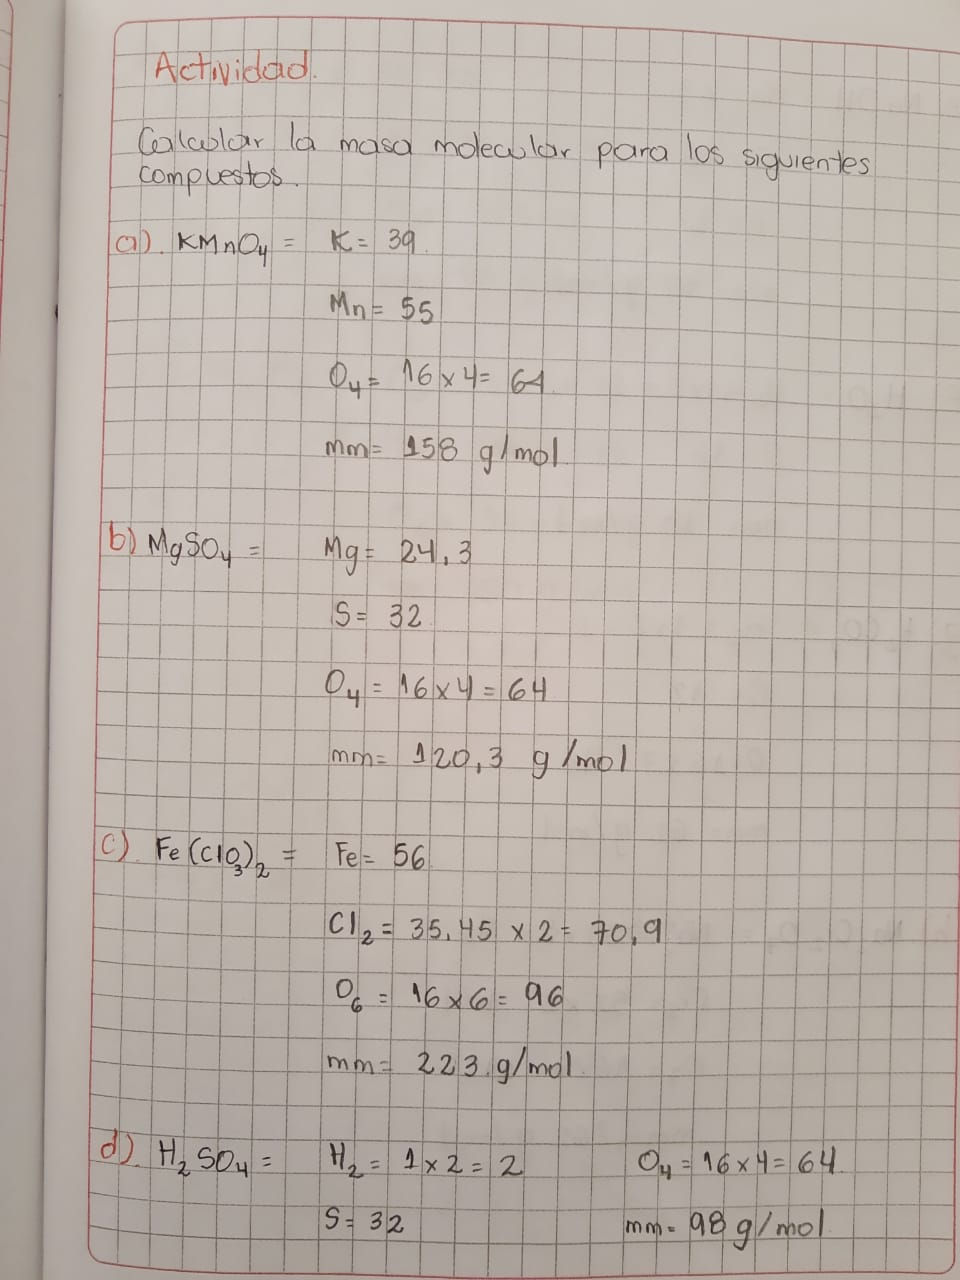 Actividad.
Calcular la masa molecular para los siguientes
compuestos.
a). KMnO₄ = K = 39.
Mn = 55
O₄ = 16 x 4 = 64
mm = 158 g/mol
b) MgSO₄ = Mg = 24,3
S = 32
O₄ = 16 x 4 = 64
mm = 120,3 g/mol
c). Fe(ClO₃)₂ = Fe = 56
Cl₂ = 35,45 x 2 = 70,9
O₆ = 16 x 6 = 96
mm = 223 g/mol
d). H₂SO₄ = H₂ = 1 x 2 = 2 O₄ = 16 x 4 = 64
S = 32 mm = 98 g/mol